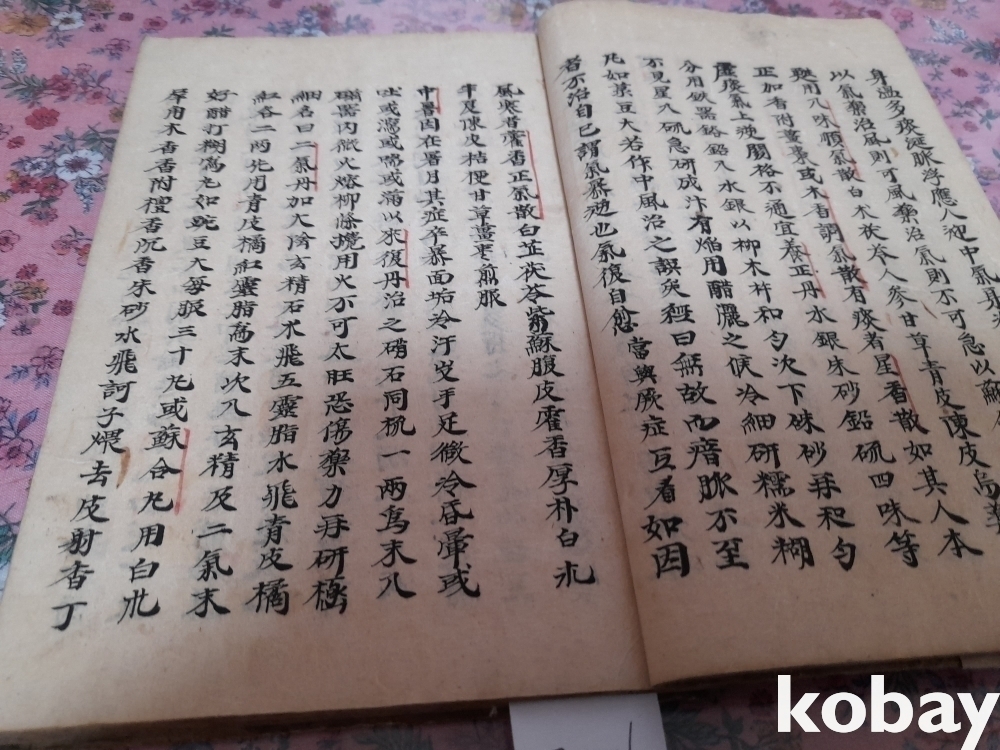 身温多痰涎脉浮應人迎中氣身
以氣藥治風則可風藥治氣則不可急以蘇
怒用八味順氣散白木茯苓人參甘草青皮陳皮烏
正加香附薑棗或木香調氣散有痰者星香散如其人本
虛痰氣上逆關格不通宜養正丹水銀朱砂鉛硫四味等
分用鉄器鎔鉛入水銀以柳木杵和匀次下硃砂再和匀
不見星入硫急研成汁有焰用醋灑之候冷細研糯米糊
凡如菉豆大若作中風治之誤矣經曰無故而瘖脉不至
者不治自已謂氣暴逆也氣復自愈當與厥症互看如因
風寒者藿香正氣散白芷茯苓紫蘇腹皮藿香厚朴白朮
半夏陳皮桔梗甘草薑枣煎服
中暑因在暑月其症卒暴面垢冷汗出手足微冷昏暈或
吐或瀉或喘或滿以來復丹治之硝石同硫一兩爲末入
磁器内微火熔柳條攪用火不可太旺恐傷藥力再研極
細名曰二氣丹加入陰玄精石水飛五靈脂水飛青皮橘
紅各二兩先用青皮橘紅靈脂爲末次入玄精及二氣末
好醋打糊爲丸如豌豆大每服三十丸或蘇合丸用白朮
犀角木香香附檀香沉香朱砂水飛訶子煨去皮射香丁
kobay